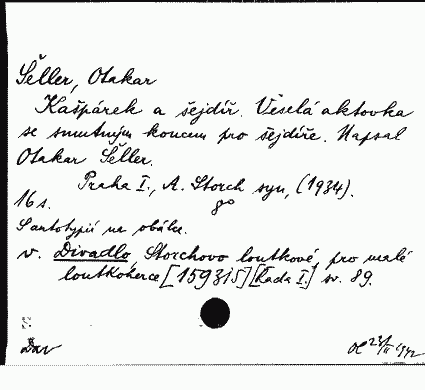 Šeller, Otakar
Kašpárek a šejdíř. Veselá aktovka
se smutným koncem pro šejdíře. Napsal
Otakar Šeller.
Praha I., A. Storch syn, (1934).
16 s. 8°
S autotypií na obálce.
v. Divadlo, Storchovo loutkové, pro malé
loutkoherce [15931S] [Řada I.] sv. 89.
Dar